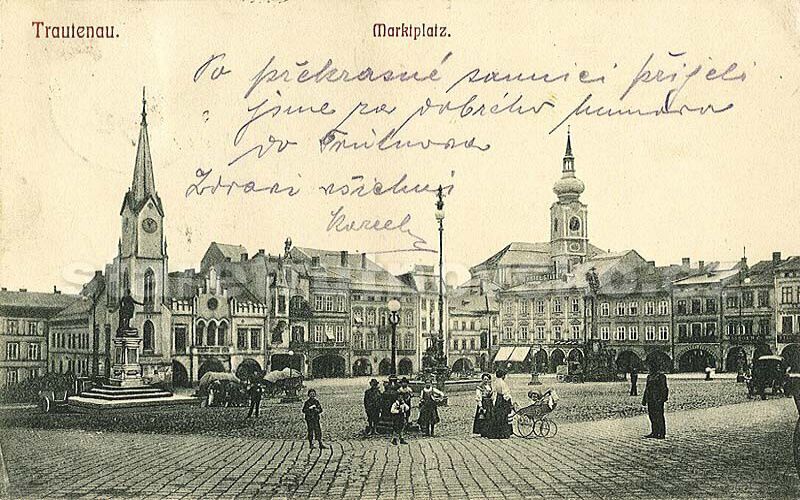 Trautenau.
Marktplatz.
Po překrasné sannici přijeli
jsme za dobrého humoru
do Trutnova
Zdraví všichni